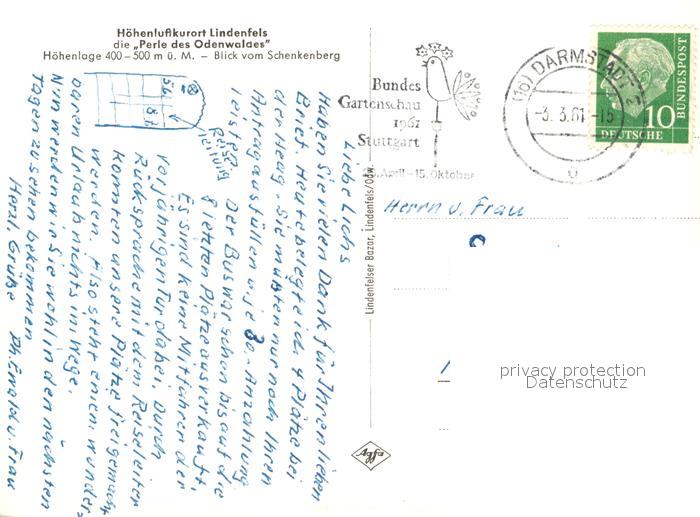 Höhenluftkurort Lindenfels
die „Perle des Odenwaldes"
Höhenlage 400–500 m ü. M. – Blick vom Schenkenberg
Liebe Lichs
Haben Sie vielen Dank für Ihren lieben
Brief. Heute belegte ich 4 Plätze bei
der Heag. Sie müßten nur noch Ihren
Antrag ausfüllen u. je 30.- Anzahlung
leisten.
Der Bus war schon bis auf die
8 letzten Plätze ausverkauft.
Es sind keine Mitfahrer der
vorjährigen Tur dabei. Durch
Rücksprache mit dem Reiseleiter
konnten unsere Plätze freigemacht
werden. Also steht einem wunder-
baren Urlaub nichts im Wege.
Nun werden wir Sie wohl in den nächsten
Tagen zu sehen bekommen
Herzl. Grüße Ph. Ewald u. Frau
5 6
8
Reise
leitung
Lindenfelser Bazar, Lindenfels/Odw.
Agfa
Bundes
Gartenschau
1961
Stuttgart
April - 15. Oktober
(16) DARMSTADT 2
-3. 3. 61 - 15
ü
10
DEUTSCHE
BUNDESPOST
Herrn u. Frau
privacy protection
Datenschutz